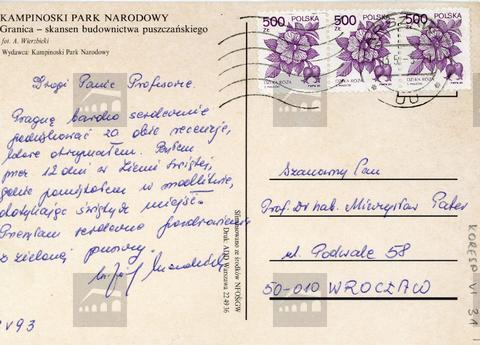 KAMPINOSKI PARK NARODOWY
Granica – skansen budownictwa puszczańskiego
fot. A. Wierzbicki
Wydawca: Kampinoski Park Narodowy
500 zł POLSKA
DZIKA RÓŻA
500 zł POLSKA
DZIKA RÓŻA
500 zł POLSKA
DZIKA RÓŻA
Drogi Panie Profesorze.
Pragnę bardzo serdecznie
podziękować za obie recenzje,
które otrzymałem. Byłem
przez 12 dni w Ziemi Świętej,
gdzie pamiętałem w modlitwie,
dotykając świętych miejsc.
Przesyłam serdeczne pozdrowienia
z zielonej
V 93
Sfinansowano ze środków NFOŚiGW
Druk. ADO Warszawa 22 49 36
Szanowny Pan
Prof. Dr hab. Mieczysław Pater
ul. Podwale 58
50-010 WROCŁAW
KORESP VI 31